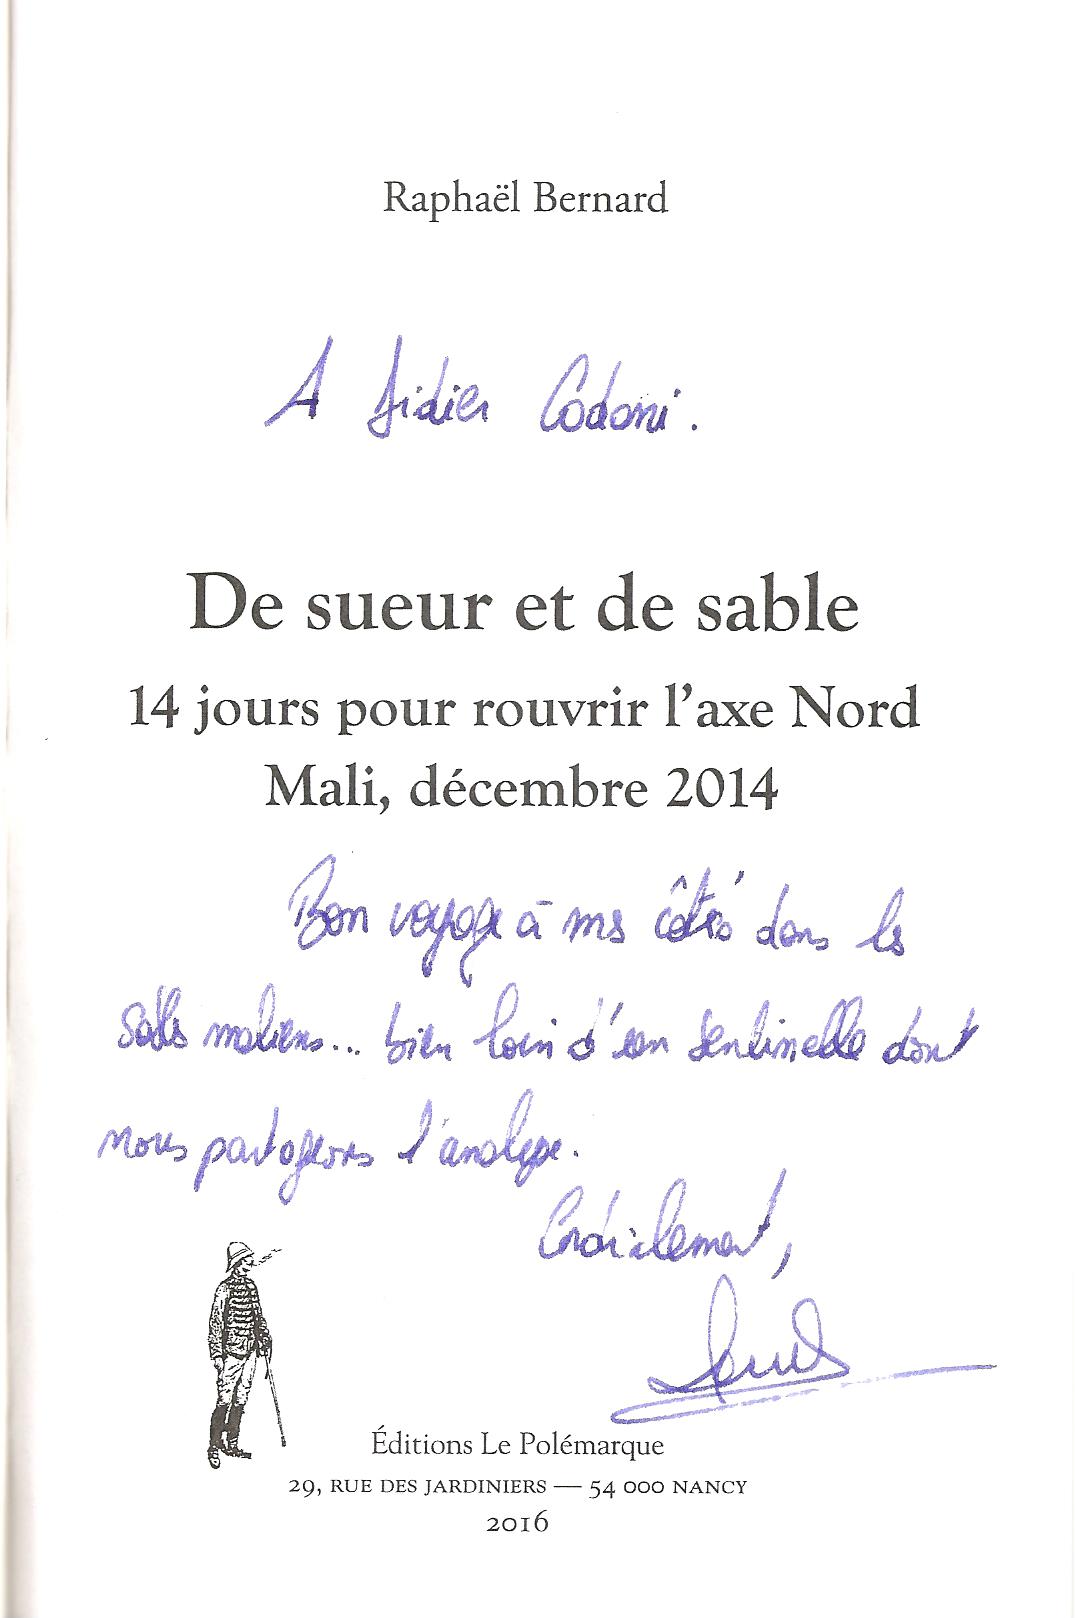 Raphaël Bernard
A Didier Codoni.
De sueur et de sable
14 jours pour rouvrir l'axe Nord
Mali, décembre 2014
Bon voyage à mes côtés dans les
sables maliens... bien loin d'un Sentinelle dont
nous partageons l'analyse.
Cordialement,
Éditions Le Polémarque
29, RUE DES JARDINIERS — 54 000 NANCY
2016